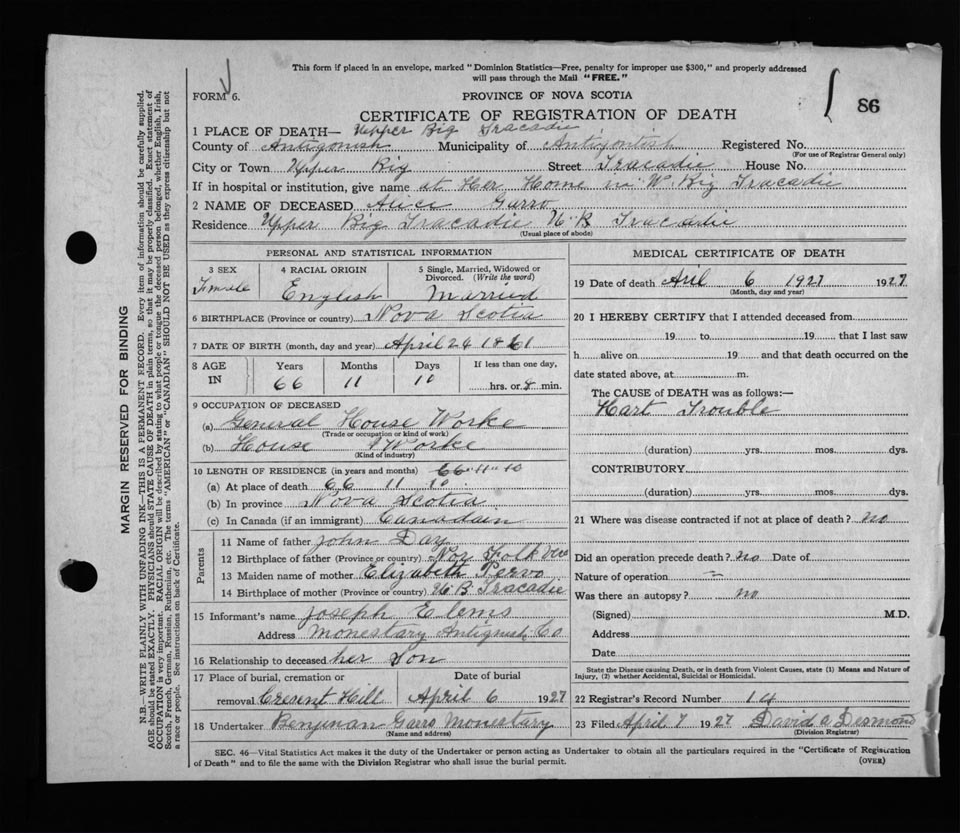 This form if placed in an envelope, marked "Dominion Statistics—Free, penalty for improper use $300," and properly addressed
will pass through the Mail "FREE."
FORM 6.
PROVINCE OF NOVA SCOTIA
86
CERTIFICATE OF REGISTRATION OF DEATH
1 PLACE OF DEATH— Upper Big Tracadie
County of Antigonish Municipality of Antigontish Registered No.
(For use of Registrar General only)
City or Town Upper Big Street Tracadie House No.
If in hospital or institution, give name at Her Home in W Big Tracadie
2 NAME OF DECEASED Alice Garro
Residence Upper Big Tracadie U. B Tracadie
(Usual place of abode)
PERSONAL AND STATISTICAL INFORMATION
3 SEX 4 RACIAL ORIGIN 5 Single, Married, Widowed or
Divorced. (Write the word)
Female English Married
6 BIRTHPLACE (Province or country) Nova Scotia
7 DATE OF BIRTH (month, day and year) April 24 1861
8 AGE IN Years Months Days If less than one day,
66 11 10 hrs. or 8 min.
9 OCCUPATION OF DECEASED
(a) General House Worke
(Trade or occupation or kind of work)
(b) House Worke
(Kind of industry)
10 LENGTH OF RESIDENCE (in years and months) 66 " 11 " 10
(a) At place of death 66 11 10
(b) In province Nova Scotia
(c) In Canada (if an immigrant) Canadain
Parents
11 Name of father John Day
12 Birthplace of father (Province or country) Nor Folk
13 Maiden name of mother Elizabeth Pervo
14 Birthplace of mother (Province or country) U. B Tracadie
15 Informant's name Joseph Elems
Address Monestary Antignish Co
16 Relationship to deceased her Son
17 Place of burial, cremation or Date of burial
removal Cresent Hill April 6 1927
18 Undertaker Benjman Garro Monestary
(Name and address)
MEDICAL CERTIFICATE OF DEATH
19 Date of death Aril 6 1927 1927
(Month, day and year)
20 I HEREBY CERTIFY that I attended deceased from
19 to 19 that I last saw
h alive on 19 and that death occurred on the
date stated above, at m.
The CAUSE of DEATH was as follows:—
Hart Trouble
(duration) yrs. mos. dys.
CONTRIBUTORY
(duration) yrs. mos. dys.
21 Where was disease contracted if not at place of death? no
Did an operation precede death? no Date of
Nature of operation —
Was there an autopsy? no
(Signed) M.D.
Address
Date
State the Disease causing Death, or in death from Violent Causes, state (1) Means and Nature of
Injury, (2) whether Accidental, Suicidal or Homicidal.
22 Registrar's Record Number 14
23 Filed April 7 1927 David A Desmond
(Division Registrar)
SEC. 46—Vital Statistics Act makes it the duty of the Undertaker or person acting as Undertaker to obtain all the particulars required in the "Certificate of Registration
of Death" and to file the same with the Division Registrar who shall issue the burial permit.
(OVER)
MARGIN RESERVED FOR BINDING
N.B.—WRITE PLAINLY WITH UNFADING INK—THIS IS A PERMANENT RECORD. Every item of information should be carefully supplied.
AGE should be stated EXACTLY. PHYSICIANS should STATE CAUSE OF DEATH in plain terms, so that it may be properly classified. Exact statement of
OCCUPATION is very important. RACIAL ORIGIN will be described by stating to what people or tongue the deceased person belonged, whether English, Irish,
Scotch, French, German, Russian, Ruthenian, etc. The terms "AMERICAN" or "CANADIAN" SHOULD NOT BE USED as they express citizenship but not
a race or people. See instructions on back of Certificate.